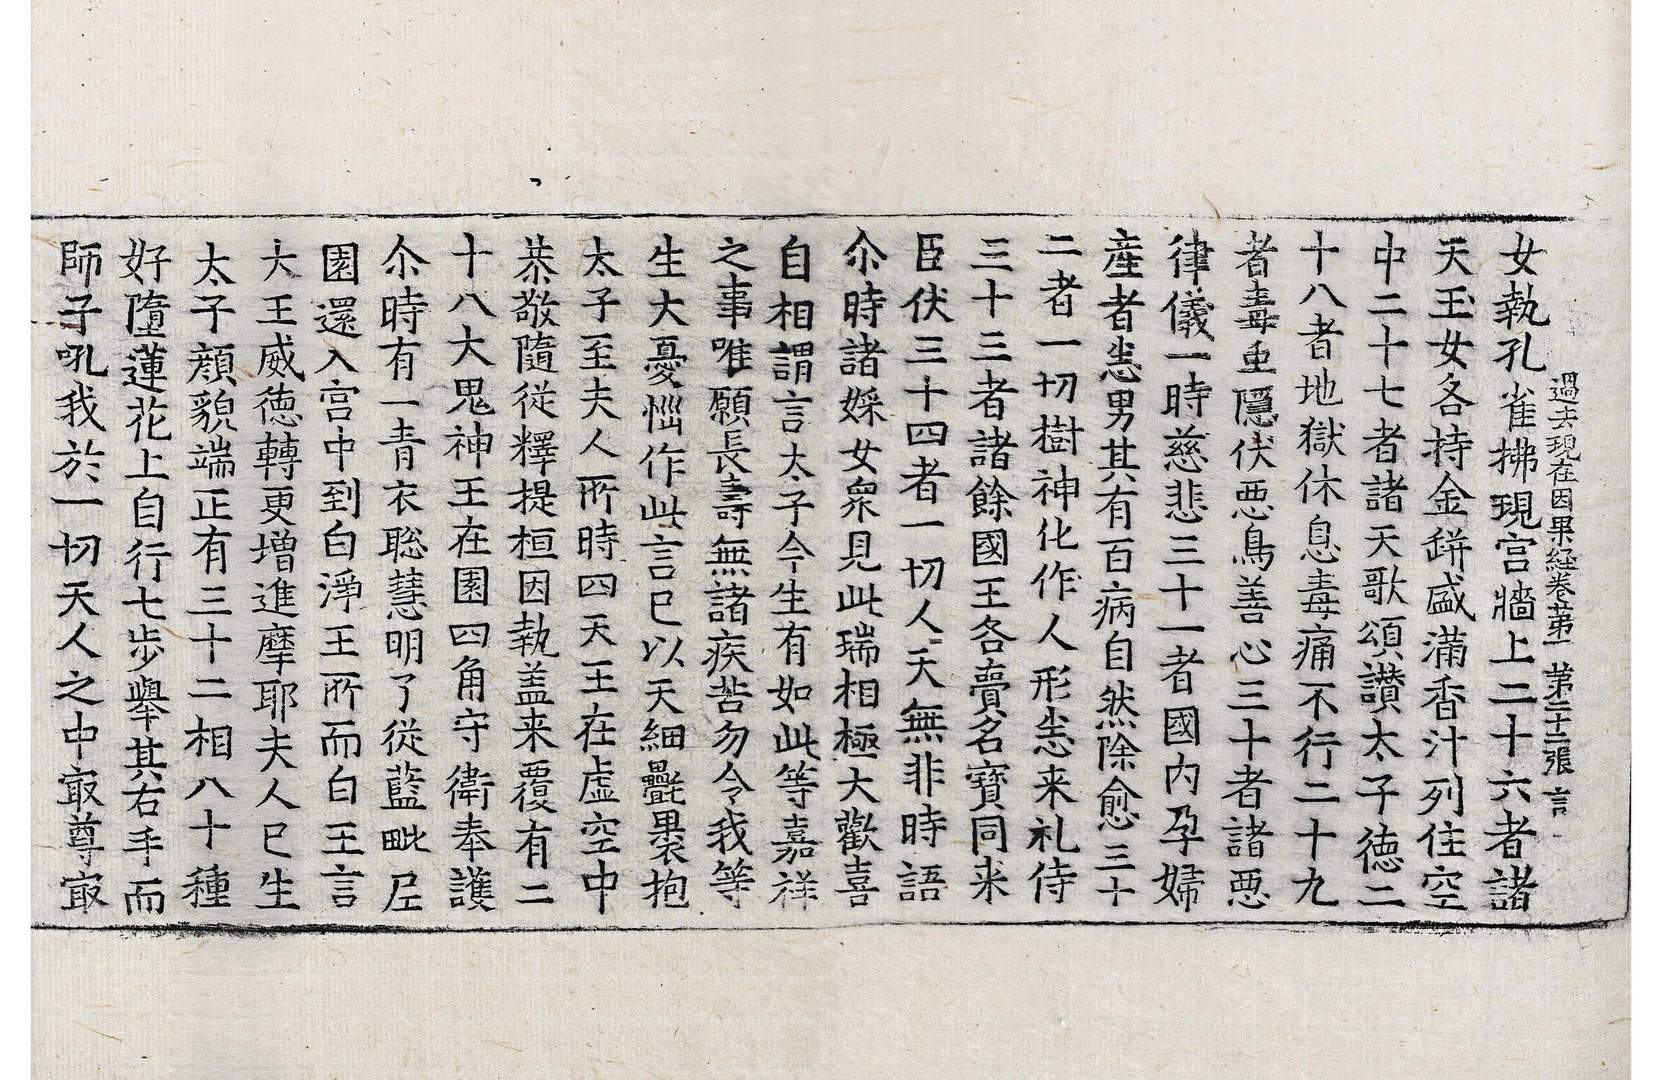 過去現在因果経巻苐一 第二十二張 言
女執孔雀拂現宫牆上二十六者諸
天玉女各持金缾盛滿香汁列住空
中二十七者諸天歌頌讃太子徳二
十八者地獄休息毒痛不行二十九
者毒虫隱伏惡鳥善心三十者諸惡
律儀一時慈悲三十一者國内孕婦
産者悉男其有百病自然除愈三十
二者一切樹神化作人形悉来礼侍
三十三者諸餘國王各賷名寶同来
臣伏三十四者一切人天無非時語
尒時諸婇女衆見此瑞相極大歡喜
自相謂言太子今生有如此等嘉祥
之事唯願長壽無諸疾苦勿令我等
生大憂惱作此言已以天細㲲褁抱
太子至夫人所時四天王在虚空中
恭敬隨從釋提桓因執盖来覆有二
十八大鬼神王在園四角守衛奉護
尒時有一青衣聡慧明了從藍毗尼
園還入宫中到白淨王所而白王言
大王威徳轉更增進摩耶夫人已生
太子顔貌端正有三十二相八十種
好墮蓮花上自行七步舉其右手而
師子吼我於一切天人之中㝡尊㝡